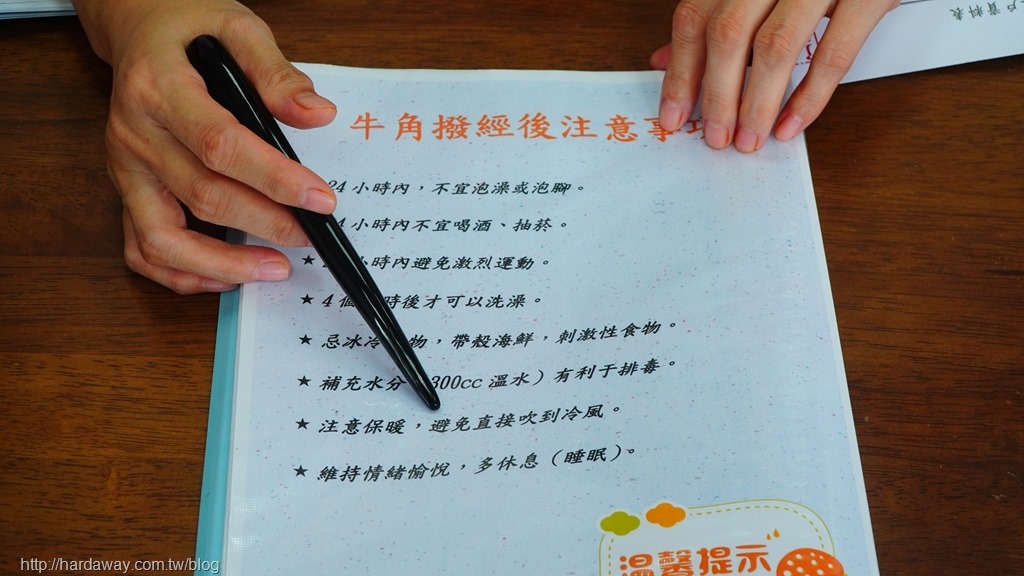 戶資料表
牛角撥經後注意事
24小時內，不宜泡澡或泡腳。
4小時內不宜喝酒、抽菸。
★ 小時內避免激烈運動。
★ 4個 時後才可以洗澡。
★ 忌冰冷 物，帶殼海鮮，刺激性食物。
★ 補充水分 300cc 溫水）有利于排毒。
★ 注意保暖，避免直接吹到冷風。
★ 維持情緒愉悅，多休息（睡眠）。
溫馨提示
http://hardaway.com.tw/blog